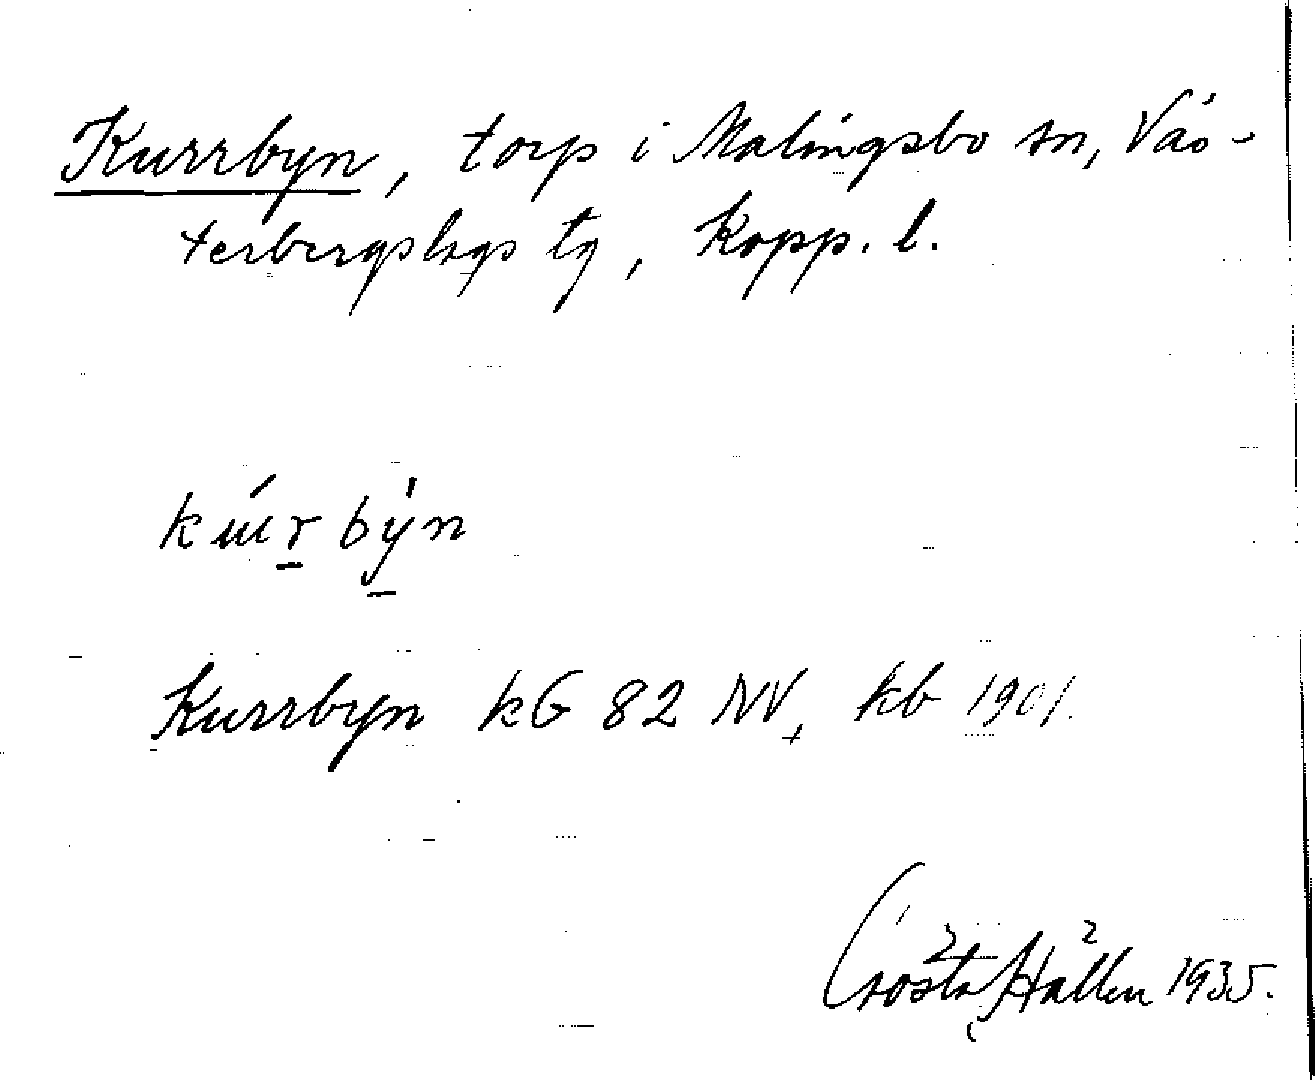 Kurrbyn, torp i Malingsbo sn, Väs-
terbergslags tg, Kopp. l.
Kurrbyn kG 82 NV, kb 1901.
Gösta Hallén 1935.